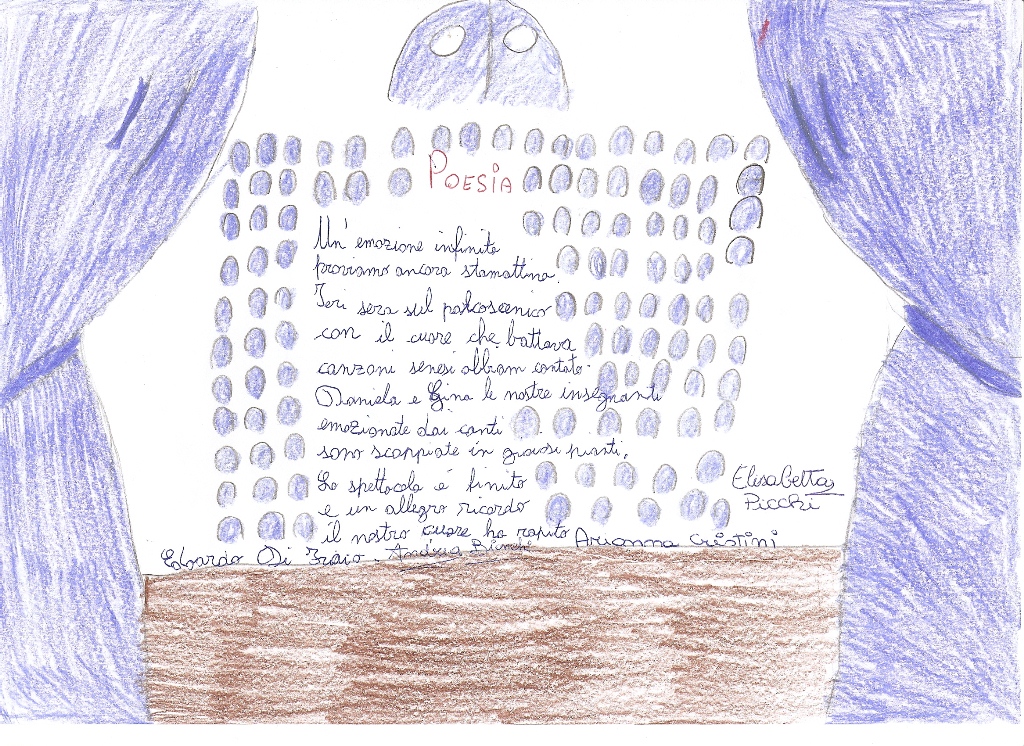 POESIA
Un'emozione infinita
proviamo ancora stamattina.
Ieri sera sul palcoscenico
con il cuore che battava
canzoni senesi abbiam cantato.
Daniela e Gina le nostre insegnanti
emozionate dai canti
sono scoppiate in gioiosi pianti.
Lo spettacolo é finito
e un allegro ricordo
il nostro cuore ha rapito
Elisabetta
Picchi
Arianna Cristini
Edoardo Di
Andrea Bianchi